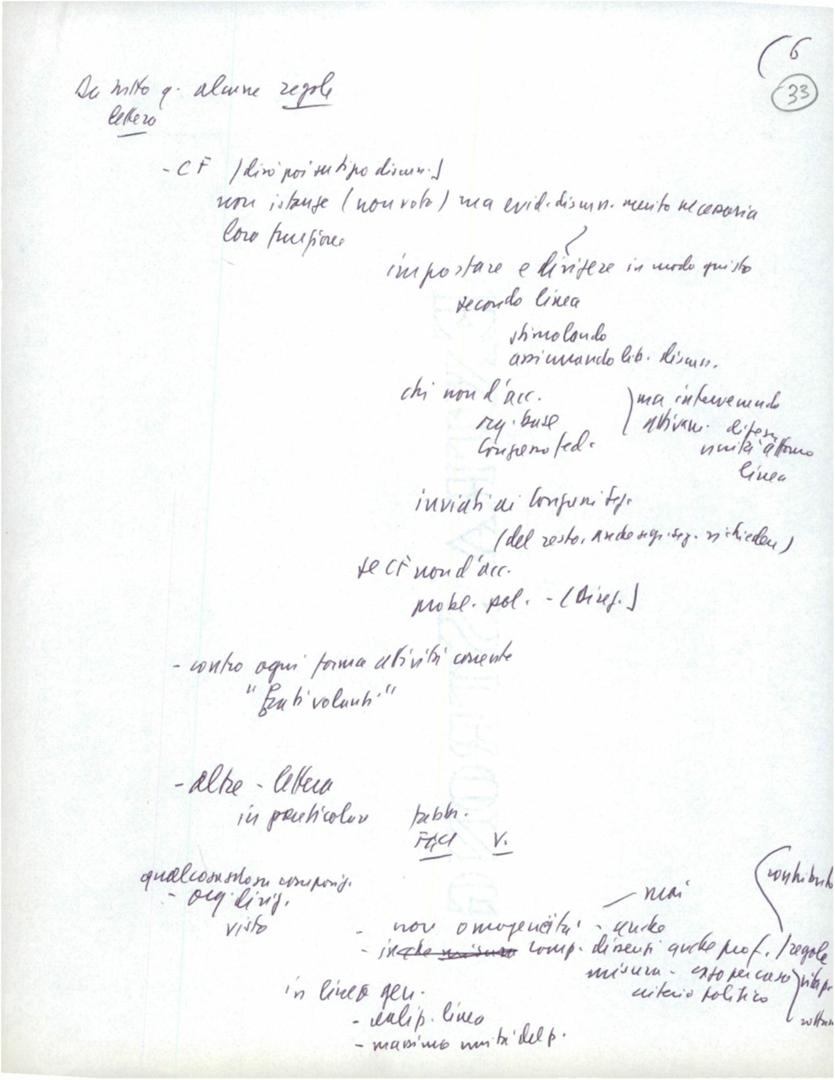 (6
33
Da q. alcune regole
lettera
- CF (dirò poi su tipo discuss.)
non istanze (non voto) ma evid. discuss. necessaria
loro funzione
impostare e dirigere in modo giusto
secondo linea
stimolando
assicurando lib. discuss.
chi non d'acc.
org. base
Congresso fed.
ma intervenendo
attivam. difesa
unità attorno
linea
inviati ai Congressi
(del resto, anche richieden)
se CF non d'acc.
probl. pol. - (Direz.)
- contro ogni forma attività corrente
"frati volanti"
- altre - lettera
in particolar pubbl.
FGCI V.
composiz.
- org. dirig.
visto
- non omogeneità - anche
mai
- in che misura comp. dissensi anche prof. / regole
misura - caso per caso
criterio politico
contributo
vita p
in linea gen.
- realiz. linea
- massimo unità del p.